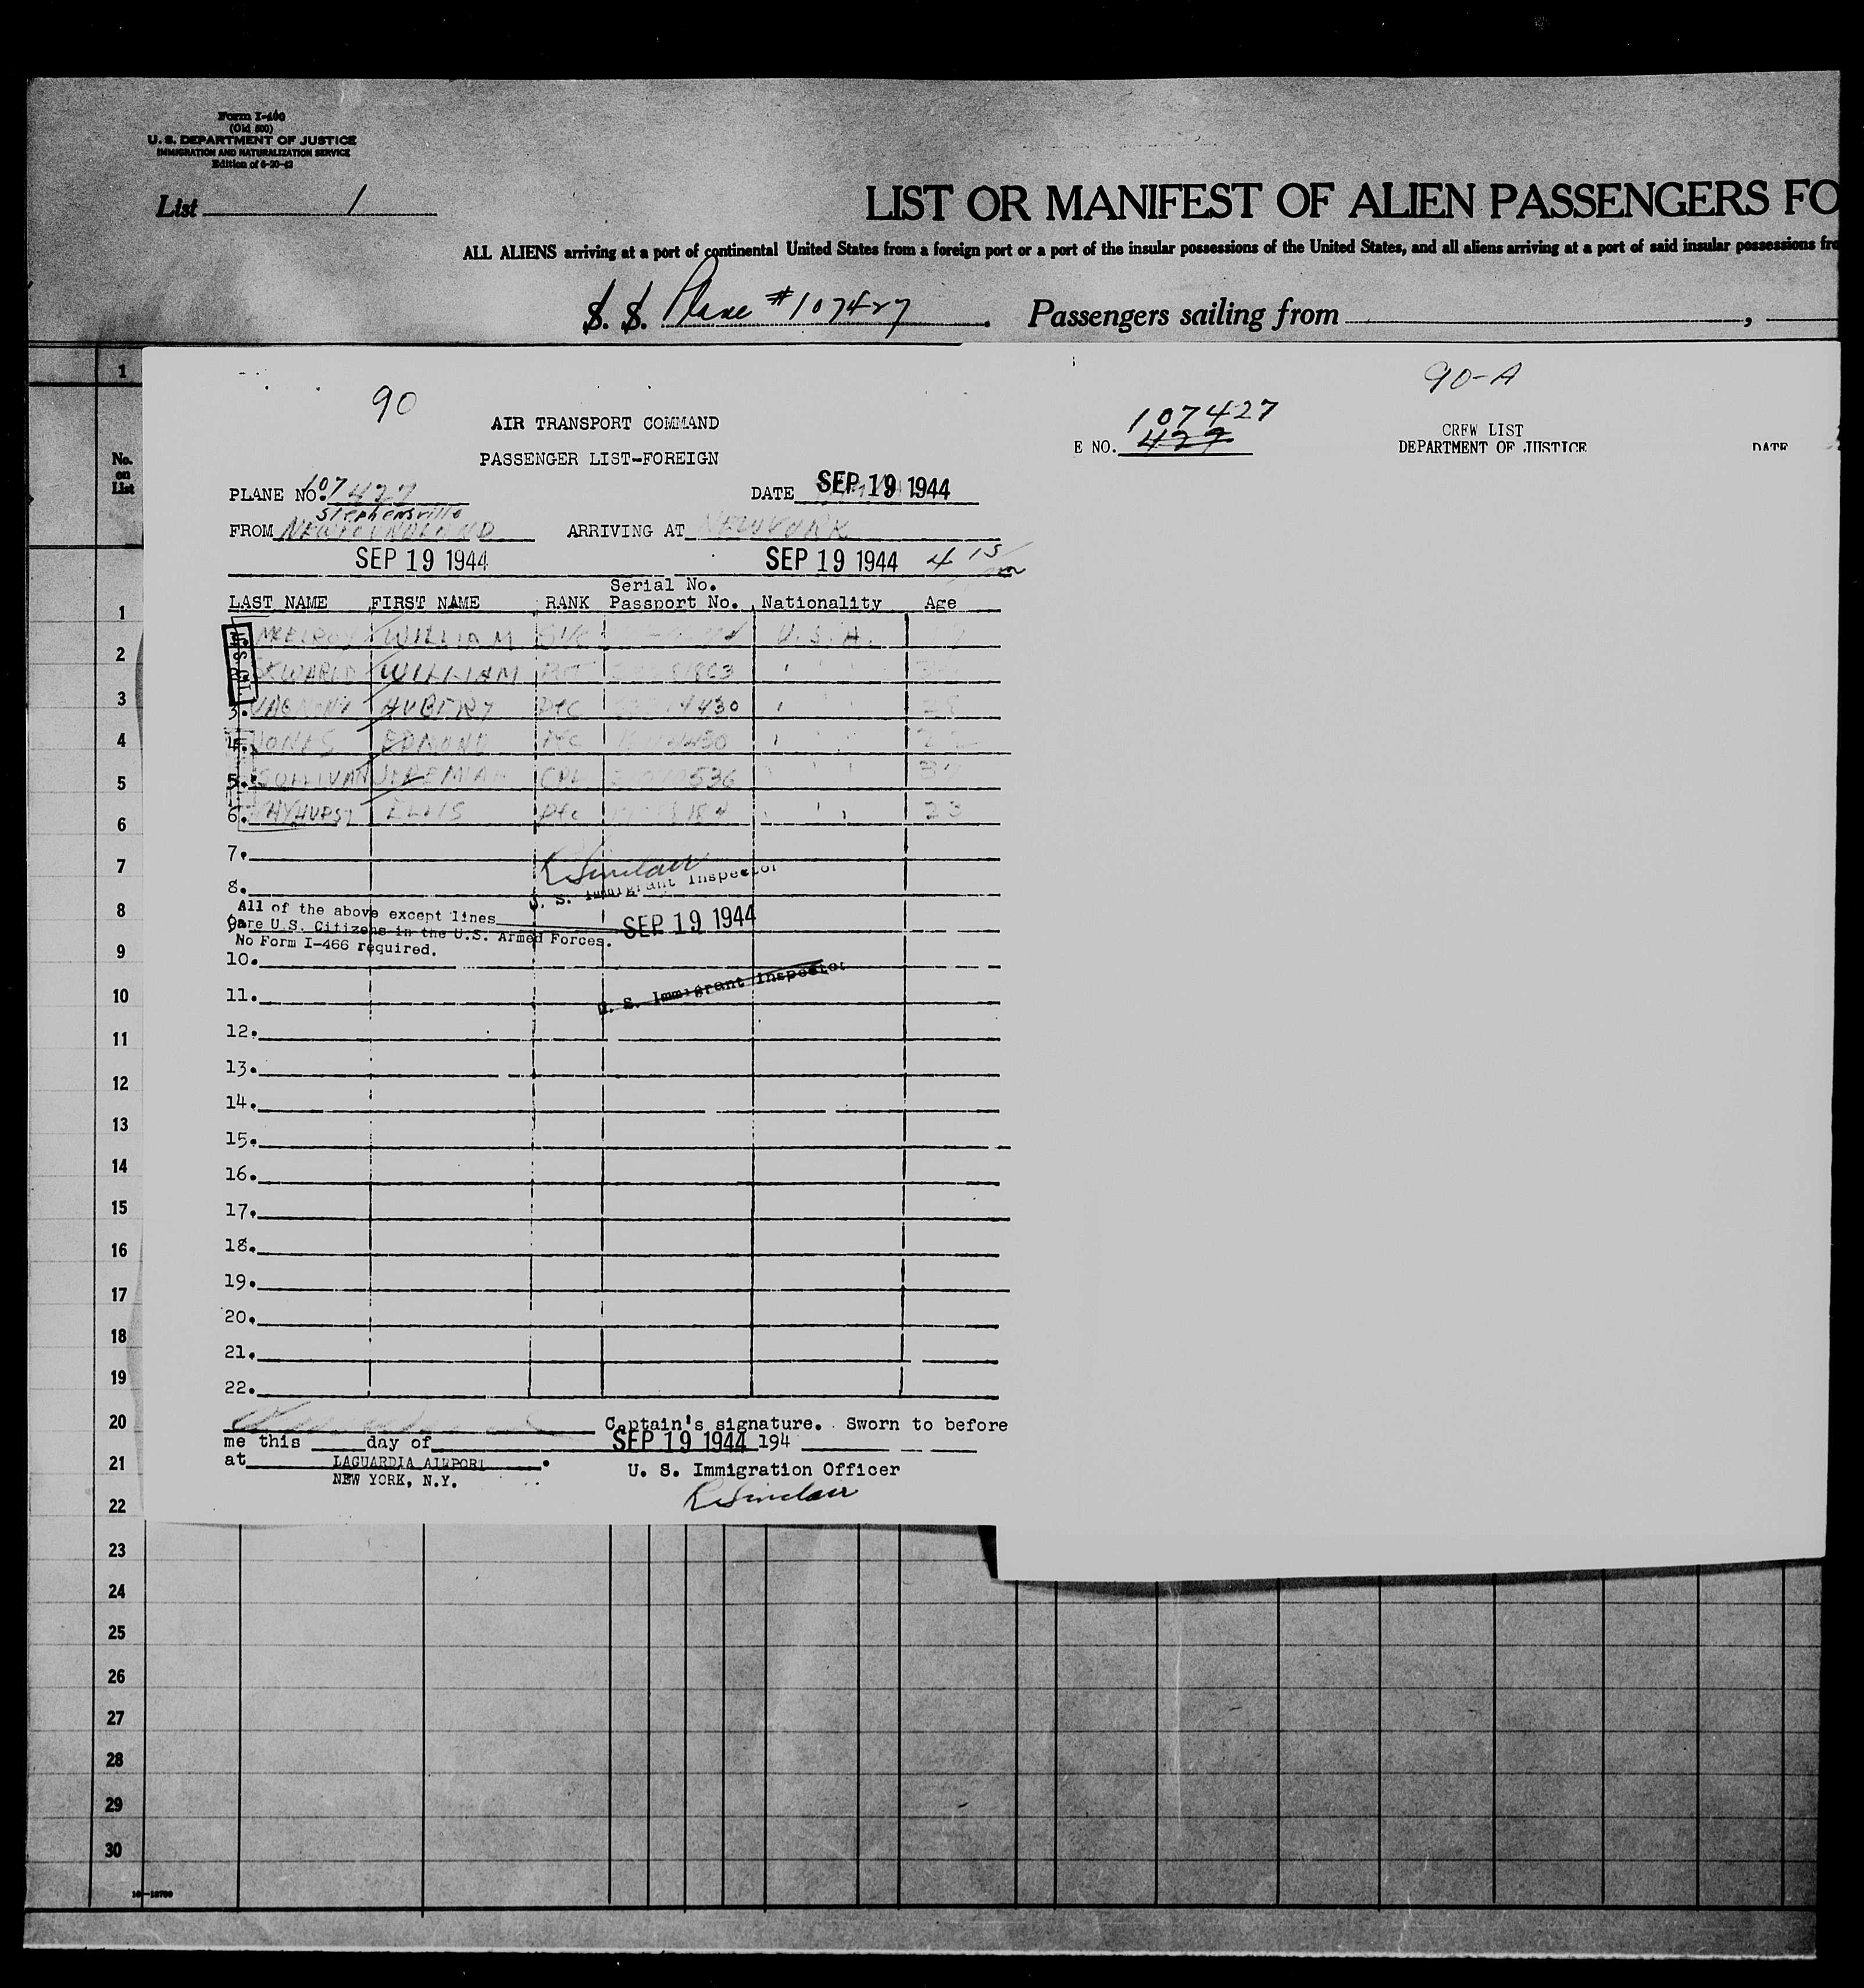 Form I-400
(Old 500)
U. S. DEPARTMENT OF JUSTICE
IMMIGRATION AND NATURALIZATION SERVICE
Edition of 6-20-43
List 1
LIST OR MANIFEST OF ALIEN PASSENGERS FO
ALL ALIENS arriving at a port of continental United States from a foreign port or a port of the insular possessions of the United States, and all aliens arriving at a port of said insular possessions fro
S. S. Plane #107427 Passengers sailing from
90
AIR TRANSPORT COMMAND
PASSENGER LIST-FOREIGN
PLANE NO. 107427 DATE SEP 19 1944
Stephensville
FROM NEWFOUNDLAND ARRIVING AT NEW YORK
SEP 19 1944 SEP 19 1944 4 15
Serial No.
LAST NAME FIRST NAME RANK Passport No. Nationality Age
1. McELROY WILLIAM U.S.A.
2. WILLIAM
3. AUBERT Pfc 430
4. JONES EDMOND Pfc
5. SULLIVAN JEREMIAH CPL 536
6. HAYHURST ELLIS Pfc 184 23
7.
R Sinclair
U. S. Immigrant Inspector
8.
All of the above except lines
9. are U.S. Citizens in the U.S. Armed Forces.
No Form I-466 required.
SEP 19 1944
10.
U. S. Immigrant Inspector
11.
12.
13.
14.
15.
16.
17.
18.
19.
20.
21.
22.
Captain's signature. Sworn to before
me this day of SEP 19 1944 194
at LAGUARDIA AIRPORT.
NEW YORK, N.Y.
U. S. Immigration Officer
R Sinclair
90-A
107427
E NO. 427
CREW LIST
DEPARTMENT OF JUSTICE
DATE
1
No.
on
List
1
2
3
4
5
6
7
8
9
10
11
12
13
14
15
16
17
18
19
20
21
22
23
24
25
26
27
28
29
30